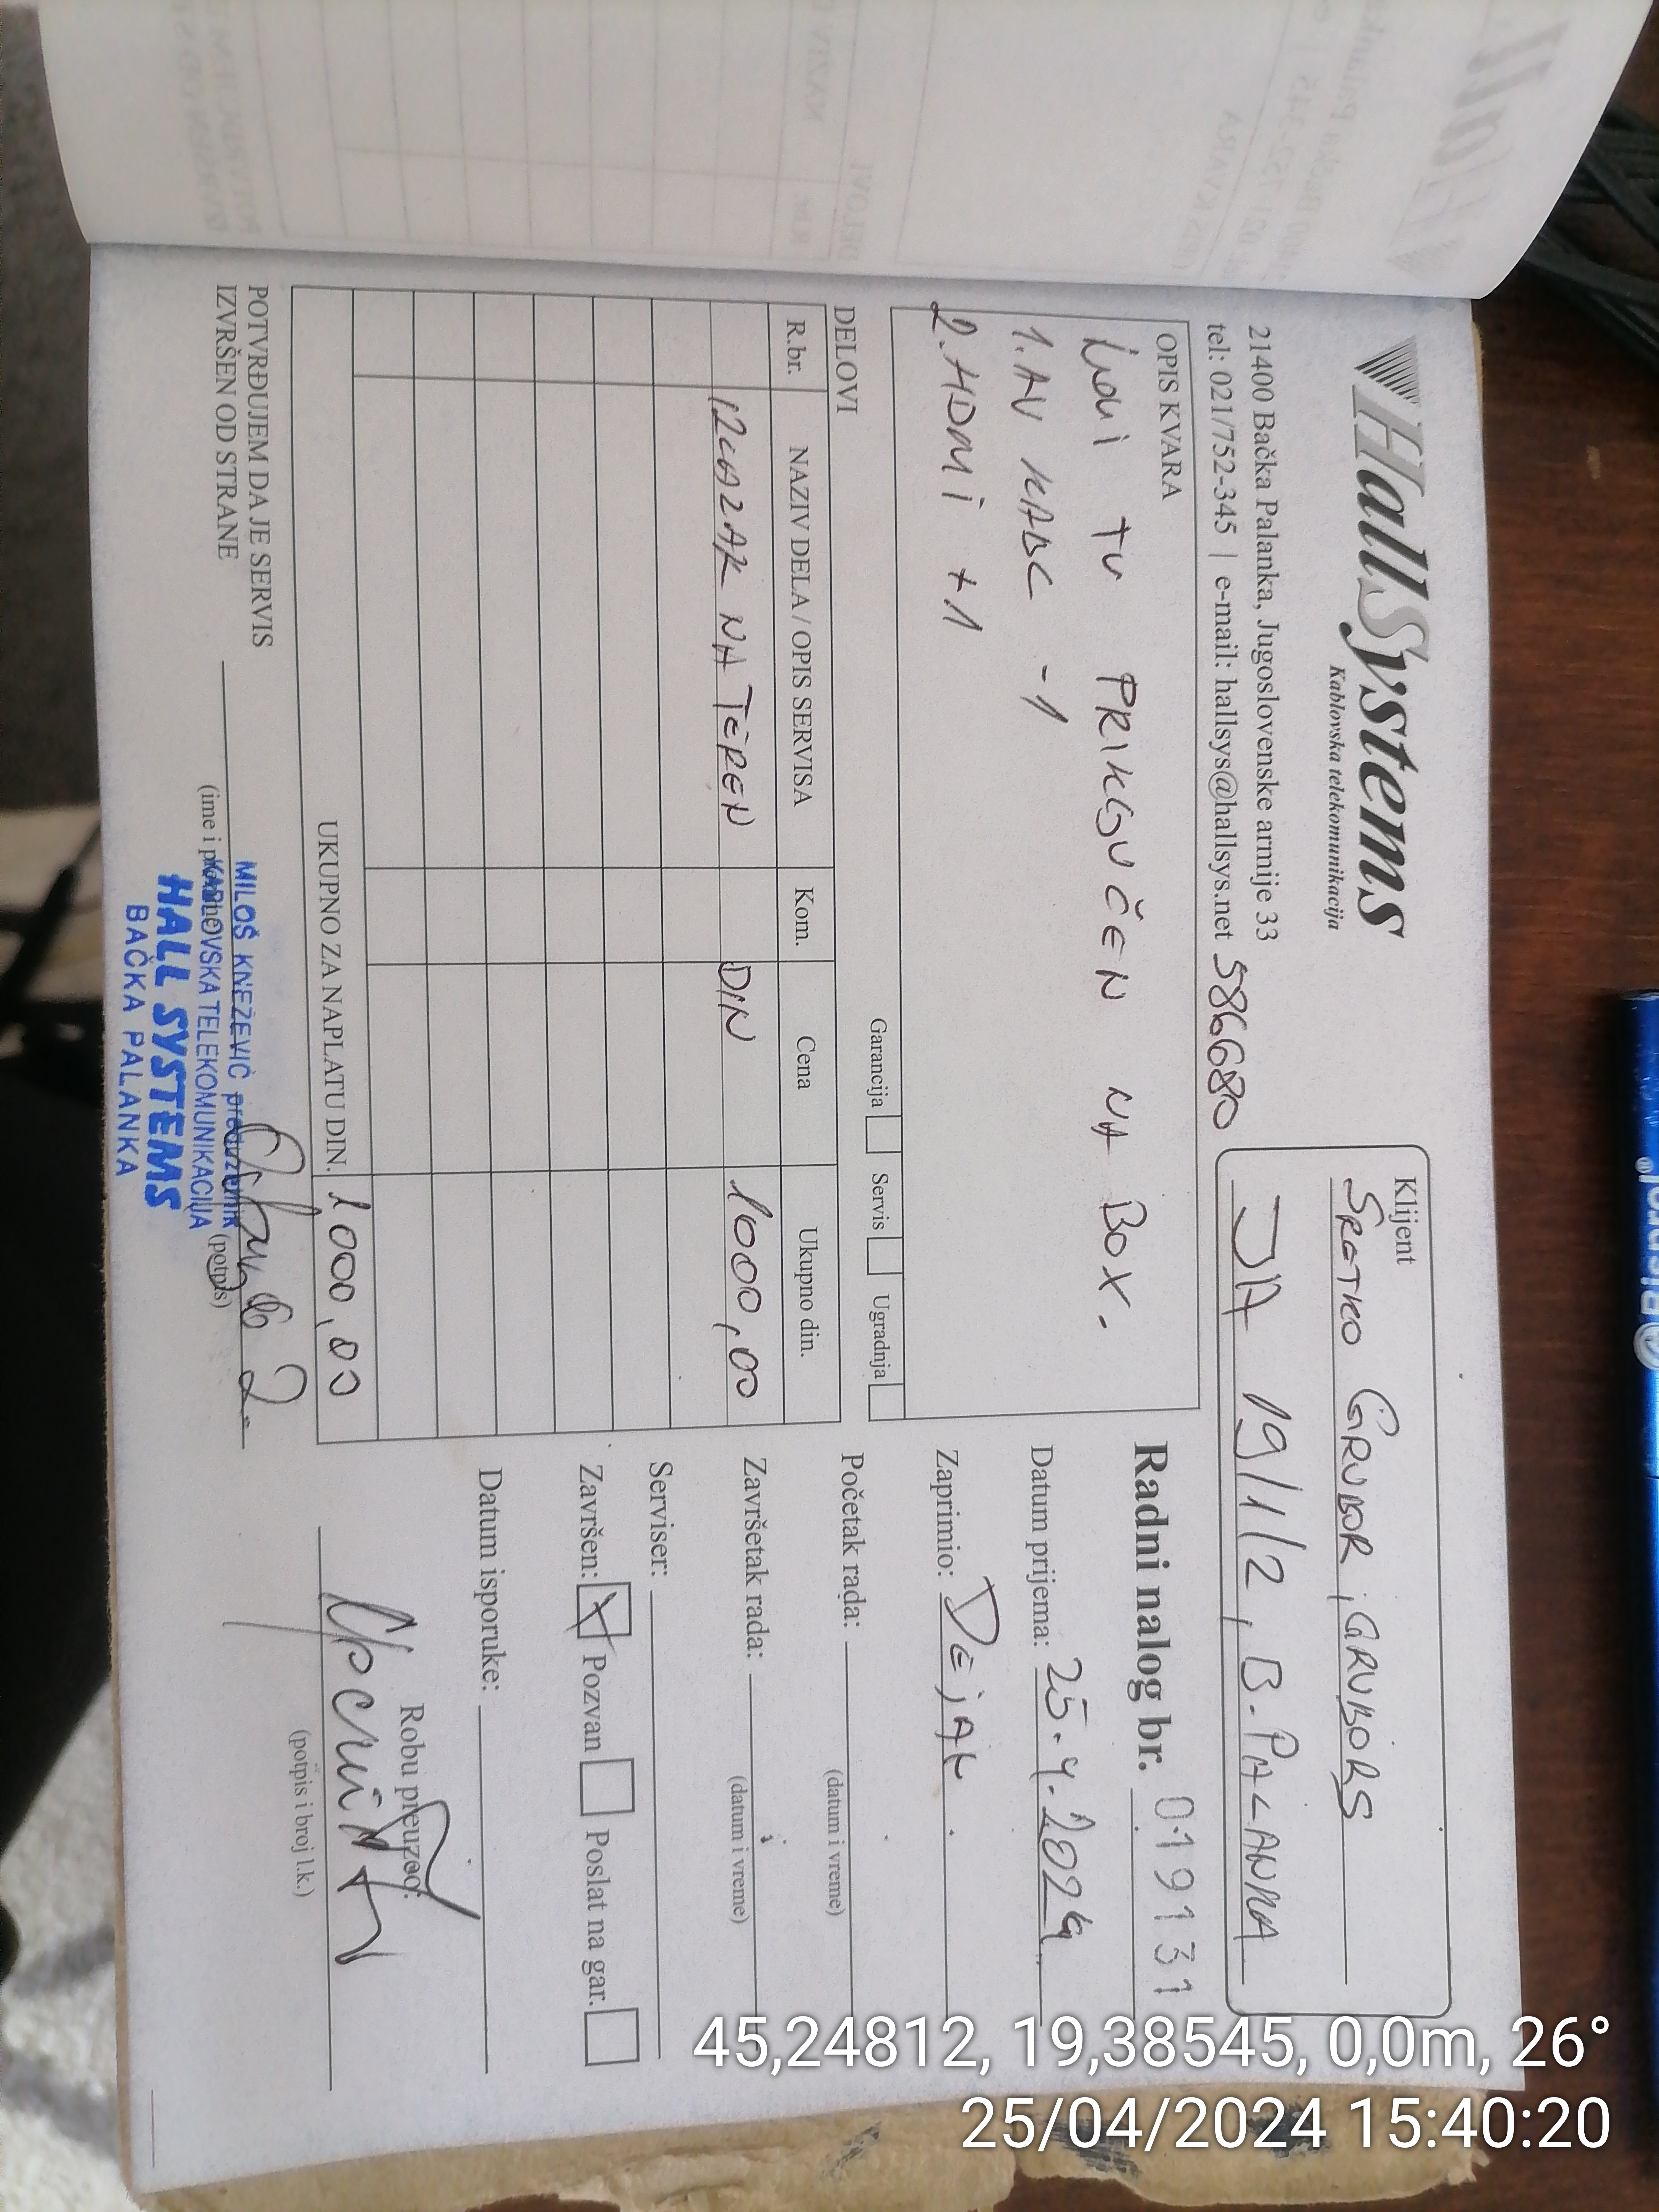 HallSystems
Kablovska telekomunikacija
21400 Bačka Palanka, Jugoslovenske armije 33
tel: 021/752-345 | e-mail: hallsys@hallsys.net 586680
Klijent
SRETKO GRUBOR, GRUBORS
JA 19/1/2, B. PALANKA
OPIS KVARA
TV PRIKLJUČEN NA BOX.
1. AV KABL -1
2. HDMI +1
Garancija Servis Ugradnja
DELOVI
R.br. NAZIV DELA / OPIS SERVISA Kom. Cena Ukupno din.
IZLAZAK NA TEREN DIN 1000,00
UKUPNO ZA NAPLATU DIN. 1000,00
POTVRĐUJEM DA JE SERVIS
IZVRŠEN OD STRANE
(ime i prezime) (potpis)
MILOŠ KNEŽEVIĆ preduzetnik
KABLOVSKA TELEKOMUNIKACIJA
HALL SYSTEMS
BAČKA PALANKA
Radni nalog br. 019131
Datum prijema: 25.4.2024
Zaprimio: DEJAN
Početak rada:
(datum i vreme)
Završetak rada:
(datum i vreme)
Serviser:
Završen: Pozvan Poslat na gar.
Datum isporuke:
Robu preuzeo:
(potpis i broj l.k.)
45,24812, 19,38545, 0,0m, 26°
25/04/2024 15:40:20